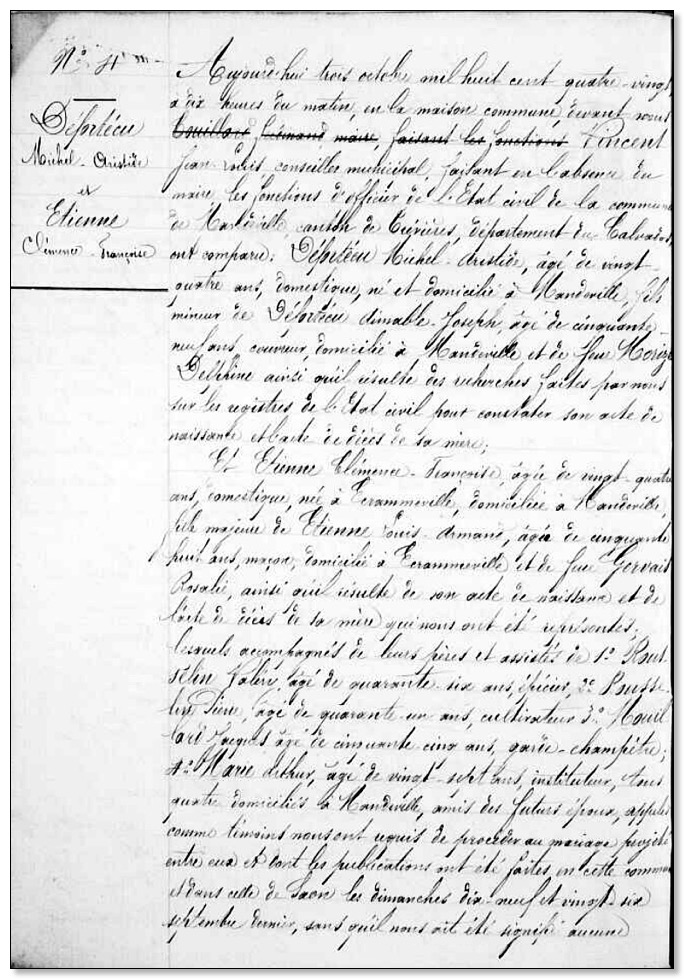 N° 4 m
Déportécu
Michel-Aristide
et
Etienne
Clémence-Françoise
Aujourd'hui trois octobre mil huit cent quatre-vingt
à dix heures du matin, en la maison commune, devant nous
Touillard Armand maire, faisant les fonctions Vincent
Jean-Louis conseiller municipal, faisant en l'absence du
maire les fonctions d'officier de l'Etat civil de la commune
de Mandeville canton de Trévières, département du Calvados,
ont comparu: Déportécu Michel-Aristide, âgé de vingt-
quatre ans, domestique, né et domicilié à Mandeville, fils
mineur de Déportécu Aimable-Joseph, âgé de cinquante-
neuf ans, couvreur, domicilié à Mandeville et de feue Morize
Delphine ainsi qu'il résulte des recherches faites par nous
sur les registres de l'Etat civil pour constater son acte de
naissance et l'acte de décès de sa mère;
Et Etienne Clémence-Françoise, âgée de vingt-quatre
ans, domestique, née à Ecrammeville, domiciliée à Mandeville,
fille majeure de Etienne Louis-Armand, âgé de cinquante
huit ans, maçon, domicilié à Ecrammeville et de feue Gervais
Rosalie, ainsi qu'il résulte de son acte de naissance et de
l'acte de décès de sa mère qui nous ont été représentés;
lesquels accompagnés de leurs pères et assistés de 1° Rous
selin Valéry, âgé de quarante-six ans, épicier, 2° Rousse
lin Pierre, âgé de quarante-un ans, cultivateur 3° Mouil
lard Jacques âgé de cinquante cinq ans, garde-champêtre;
4° Marie Arthur, âgé de vingt-sept ans, instituteur, tous
quatre domiciliés à Mandeville, amis des futurs époux, appelés
comme témoins nous ont requis de procéder au mariage projeté
entre eux et dont les publications ont été faites, en cette commune
et dans celle de Saon les dimanches dix-neuf et vingt-six
septembre dernier, sans qu'il nous ait été signifié aucune